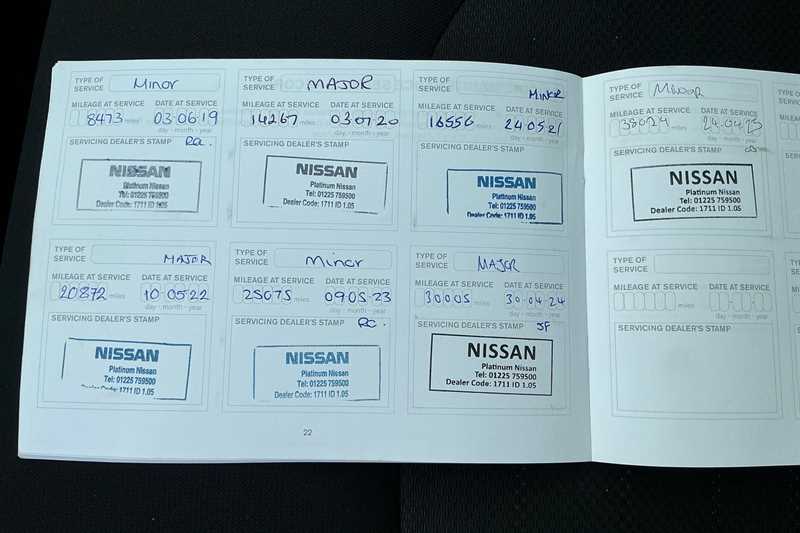 TYPE OF SERVICE Minor
MILEAGE AT SERVICE DATE AT SERVICE
8473 miles 03 06 19
day - month - year
SERVICING DEALER'S STAMP
NISSAN
Platinum Nissan
Tel: 01225 759500
Dealer Code: 1711 ID 1.05
TYPE OF SERVICE MAJOR
MILEAGE AT SERVICE DATE AT SERVICE
14267 miles 03 07 20
day - month - year
SERVICING DEALER'S STAMP
NISSAN
Platinum Nissan
Tel: 01225 759500
Dealer Code: 1711 ID 1.05
TYPE OF SERVICE MINOR
MILEAGE AT SERVICE DATE AT SERVICE
16556 miles 24 05 21
day - month - year
SERVICING DEALER'S STAMP
NISSAN
Platinum Nissan
Tel: 01225 759500
Dealer Code: 1711 ID 1.05
TYPE OF SERVICE MAJOR
MILEAGE AT SERVICE DATE AT SERVICE
20872 miles 10 05 22
day - month - year
SERVICING DEALER'S STAMP
NISSAN
Platinum Nissan
Tel: 01225 759500
Dealer Code: 1711 ID 1.05
TYPE OF SERVICE Minor
MILEAGE AT SERVICE DATE AT SERVICE
25075 miles 09 05 23
day - month - year
SERVICING DEALER'S STAMP
RC.
NISSAN
Platinum Nissan
Tel: 01225 759500
Dealer Code: 1711 ID 1.05
TYPE OF SERVICE MAJOR
MILEAGE AT SERVICE DATE AT SERVICE
30005 miles 30 04 24
day - month - year
SERVICING DEALER'S STAMP JP
NISSAN
Platinum Nissan
Tel: 01225 759500
Dealer Code: 1711 ID 1.05
22
TYPE OF SERVICE
MILEAGE AT SERVICE DATE AT SERVICE
miles 24 04 25
day - month - year
SERVICING DEALER'S STAMP
NISSAN
Platinum Nissan
Tel: 01225 759500
Dealer Code: 1711 ID 1.05
TYPE OF SERVICE
MILEAGE AT SERVICE DATE AT SERVICE
miles
day - month - year
SERVICING DEALER'S STAMP